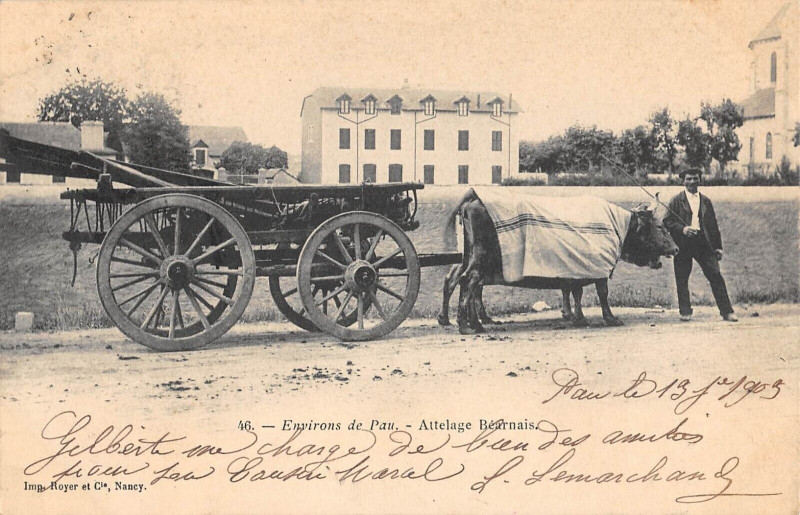 Pau le 13 Jer 1903
46. — Environs de Pau. - Attelage Béarnais.
Gilberte me charge de bien des amitiés
pour sa Cousine L. Lemarchand
Imp. Royer et Cie, Nancy.